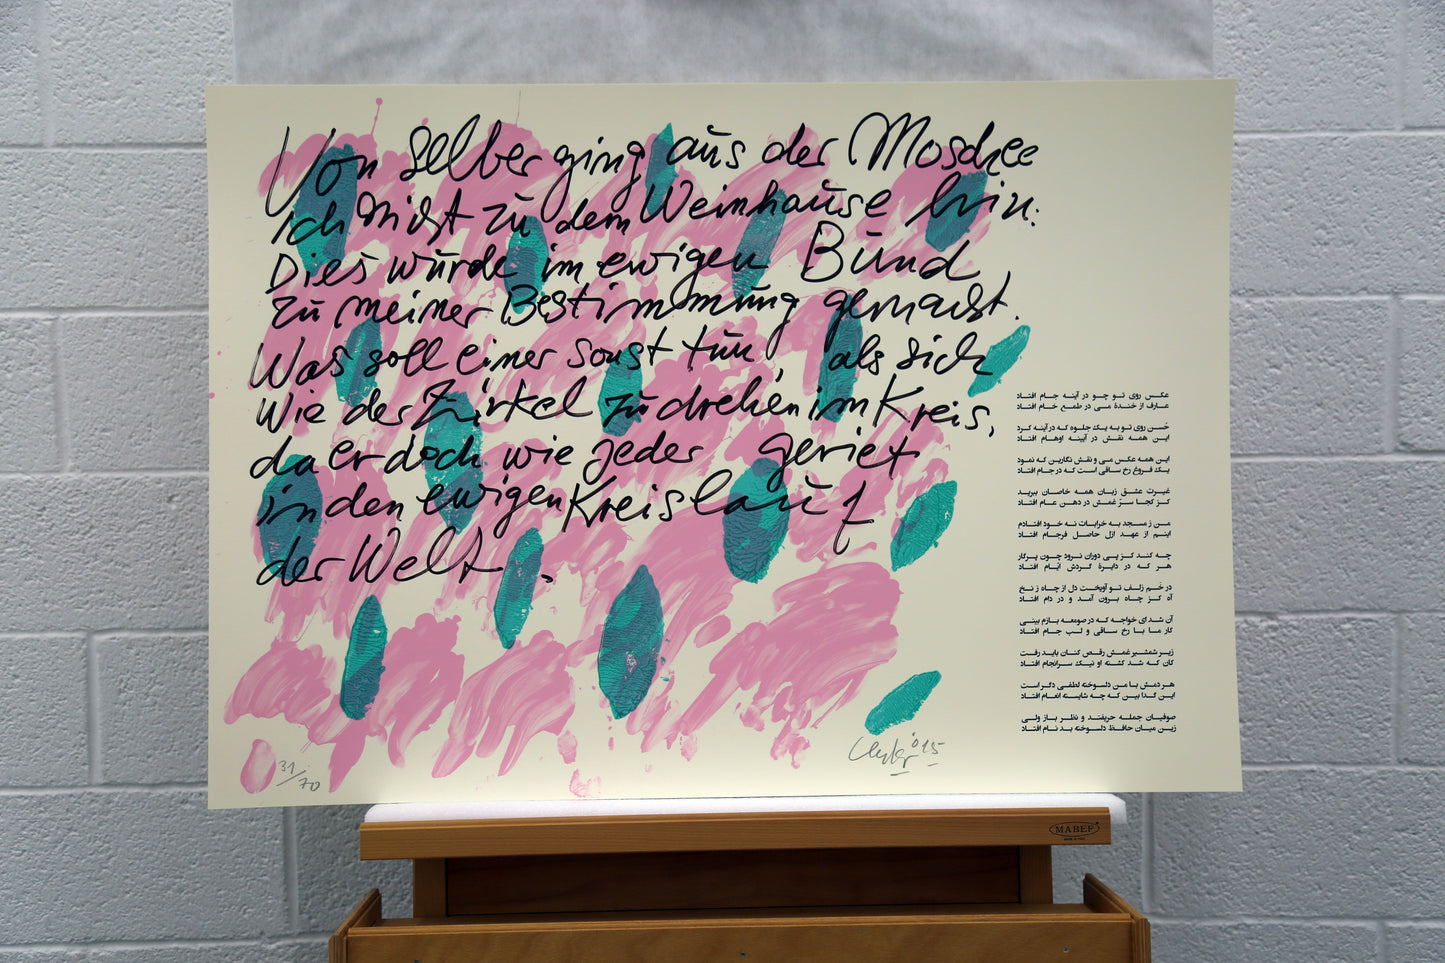 Von selber ging aus der Moschee
ich nicht zu dem Weinhause hin:
Dies wurde im ewigen Bund
zu meiner Bestimmung gemacht.
Was soll einer sonst tun, als sich
wie der Zirkel zu drehen im Kreis,
da er doch wie jeder geriet
in den ewigen Kreislauf
der Welt.
عکس روی تو چو در آینه جام افتاد
عارف از خندهٔ می در طمع خام افتاد
حُسن روی تو به یک جلوه که در آینه کرد
این همه نقش در آیینه اوهام افتاد
این همه عکس می و نقش نگارین که نمود
یک فروغ رخ ساقی است که در جام افتاد
غیرت عشق زبان همه خاصان ببرید
کز کجا سرّ غمش در دهن عام افتاد
من ز مسجد به خرابات نه خود افتادم
اینم از عهد ازل حاصل فرجام افتاد
چه کند کز پی دوران نرود چون پرگار
هر که در دایرهٔ گردش ایّام افتاد
در خَم زلف تو آویخت دل از چاه ز نخ
آه کز چاه برون آمد و در دام افتاد
آن شد ای خواجه که در صومعه بازم بینی
کار ما با رخ ساقی و لب جام افتاد
زیر شمشیر غمش رقص کنان باید رفت
کان که شد کشته او نیک سرانجام افتاد
هر دمش با من دلسوخته لطفی دگر است
این گدا بین که چه شایسته انعام افتاد
صوفیان جمله حریفند و نظر باز ولی
زین میان حافظ دلسوخته بد نام افتاد
31/70
'015
MABEF